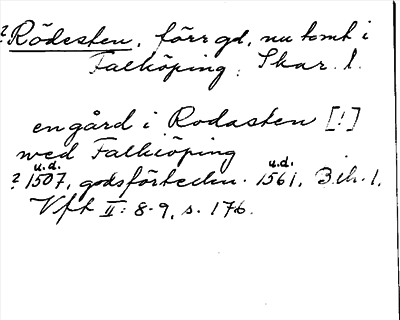 ? Rödesten, förr gd, nu tomt i
Falköping, Skar. l.
en gård i Rodasten [!]
wed Falkiöping
u.d. u.d.
? 1507, godsförteckn. 1561, Bih. 1,
Vft II: 8-9, s. 176.